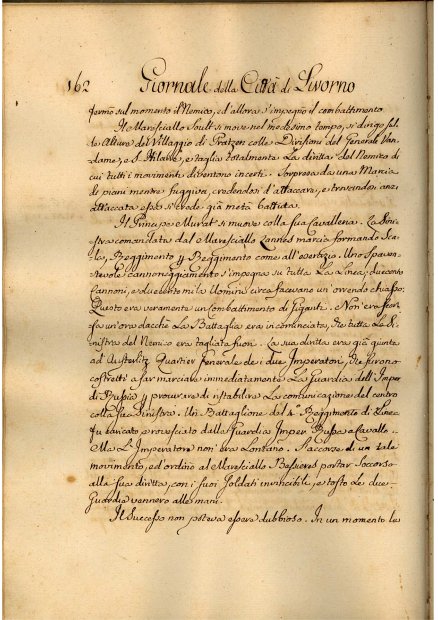 162 Giornale della Città di Livorno
fermò sul momento il Nemico, ed allora s'impegnò il combattimento.
Il Maresciallo Soult si move nel medesimo tempo, si dirige sul-
le Alture del Villaggio di Pratzen colle Divisioni del Generale Van-
dame, e S. Hilaire, e taglia totalmente la diritta del Nemico di
cui tutti i movimenti diventono incerti. Sorpresa da una Marcia
di fianco mentre fuggiva, credendosi d'attaccare, e trovandosi anzi
attaccata essa si crede già metà battuta.
Il Principe Murat si muove colla sua Cavalleria. La Sini-
stra comandata dal Maresciallo Lannes marcia formando Sca-
la, Reggimento per Reggimento come all'esercizio. Uno Spaven-
tevole cannoneggiamento s'impegna su tutta la Linea; duecento
Cannoni, e duecento mila Uomini circa facevano un'orrendo chiasso;
Questo era veramente un Combattimento di Giganti. Non era scor-
sa un'ora dacchè la Battaglia era incominciata, che tutta la Si-
nistra del Nemico era tagliata fuori. La sua diritta era già giunta
ad Austerlitz Quartier Generale de i due Imperatori, che furono
costretti a far marciare immediatamente la Guardia dell'Imper
di Russia per procurare di ristabilire la Comunicazione del centro
colla sua Sinistra. Un Battaglione del 4 Reggimento di Linea
fu caricato, e rovesciato dalla Guardia Imper Russa a Cavallo.
Ma L'Imperatore non era Lontano. S'accorse di un tale
movimento, ed ordinò al Maresciallo Bessieres portar Soccorso
alla sua diritta, con i suoi Soldati invincibili, e tosto le due
Guardie vennero alle mani.
Il Successo non poteva essere dubbioso. In un momento la